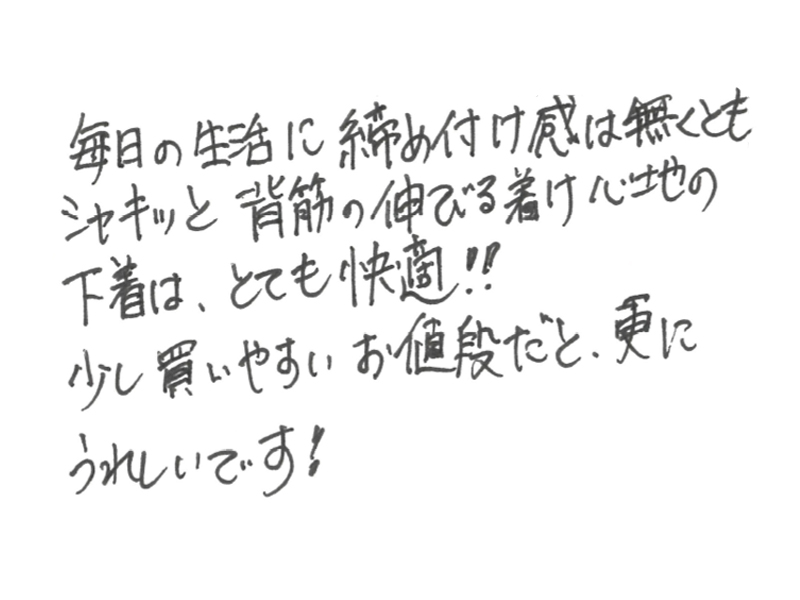 毎日の生活に締め付け感は無くとも
シャキッと背筋の伸びる着け心地の
下着は、とても快適!!
少し買いやすいお値段だと、更に
うれしいです!